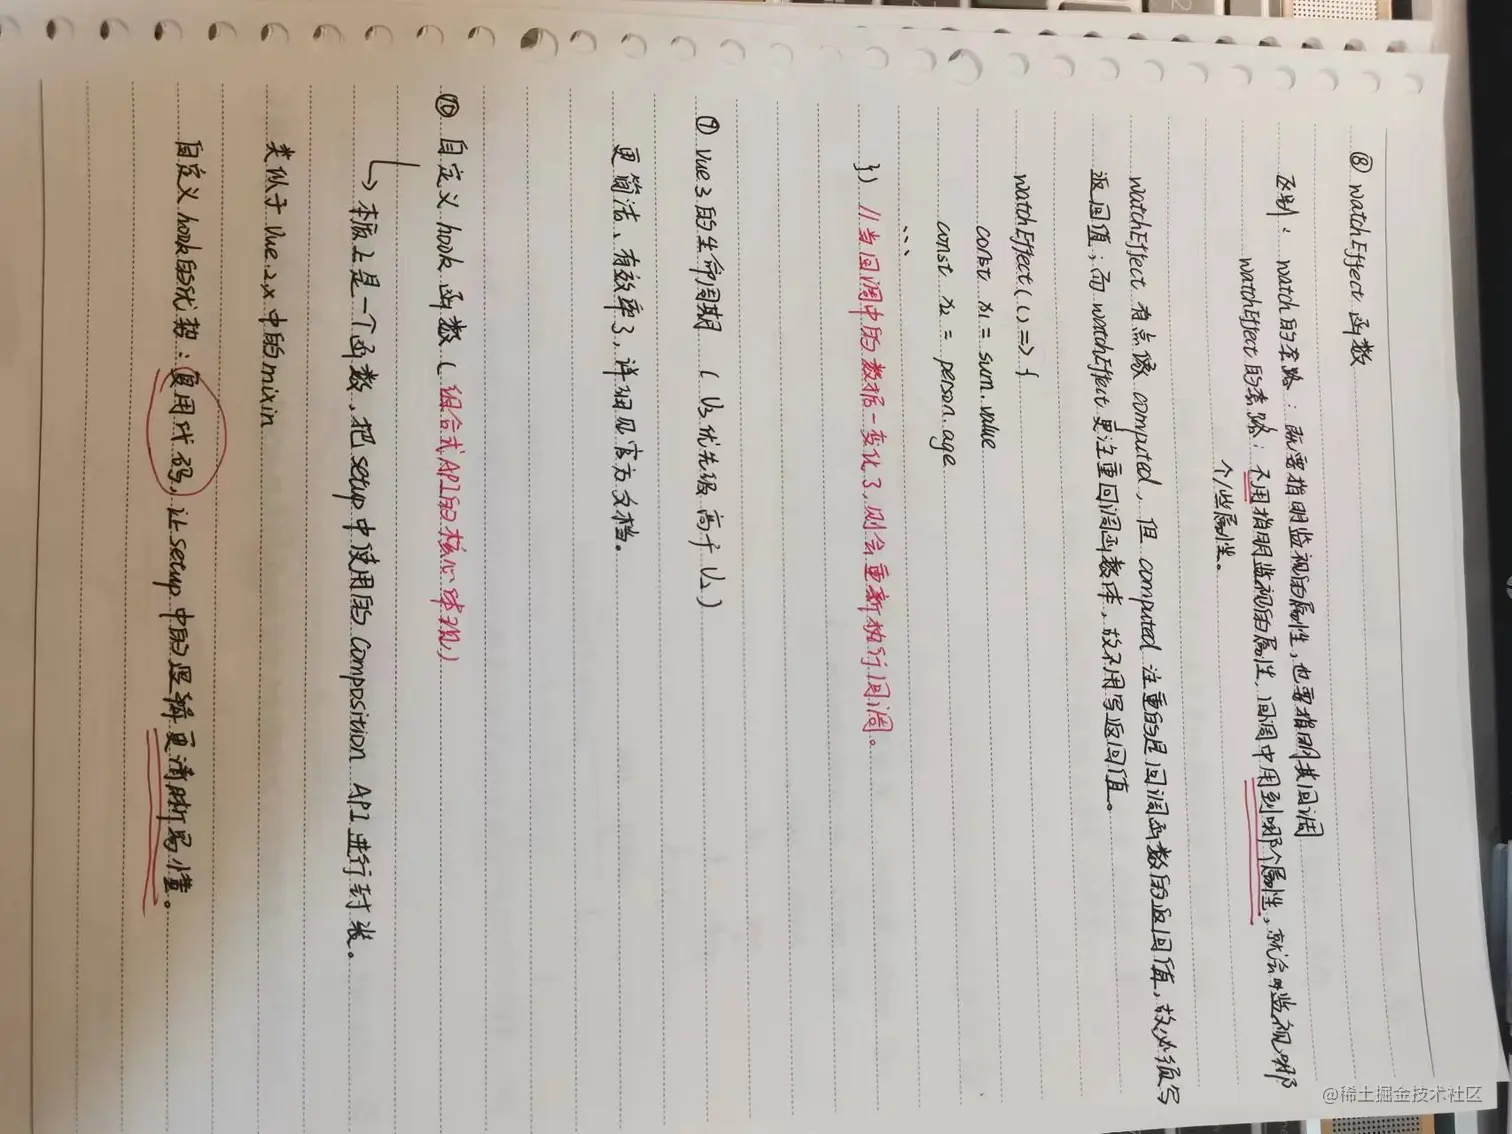 ⑧ watchEffect 函数
区别：watch的套路：既要指明监视的属性，也要指明其回调
watchEffect的套路：不用指明监视的属性，回调中用到哪个属性，就会监视哪
个/些属性。
watchEffect 有点像 computed，但 computed 注重的是回调函数的返回值，故必须写
返回值；而 watchEffect 更注重回调函数体，故不用写返回值。
watchEffect(() => {
const x₁ = sum.value
const x₂ = person.age
...
}) //当回调中的数据一变化了，则会重新执行回调。
⑨ Vue3的生命周期（V₃优先级高于V₂）
更简洁、有效率了，详细见官方文档。
⑩ 自定义 hook 函数（组合式API的核心体现）
→ 本质上是一个函数，把 setup 中使用的 Composition API 进行封装。
类似于 Vue2.x 中的 mixin
自定义 hook的优势：复用代码，让 setup 中的逻辑更清晰易懂。
@稀土掘金技术社区